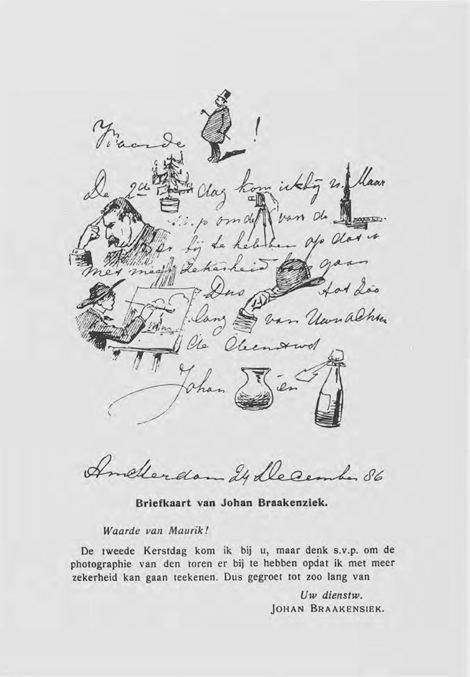 Waarde !
De 2de dag kom ik bij u, Maar
s.v.p om de van de
er bij te hebben op dat ik
met meer zekerheid kan gaan
Dus tot zoo
lang van Uwen Achten
de dienstw
Johan en
Amsterdam 24 December 86
Briefkaart van Johan Braakenziek.
Waarde van Maurik!
De tweede Kerstdag kom ik bij u, maar denk s.v.p. om de
photographie van den toren er bij te hebben opdat ik met meer
zekerheid kan gaan teekenen. Dus gegroet tot zoo lang van
Uw dienstw.
JOHAN BRAAKENSIEK.